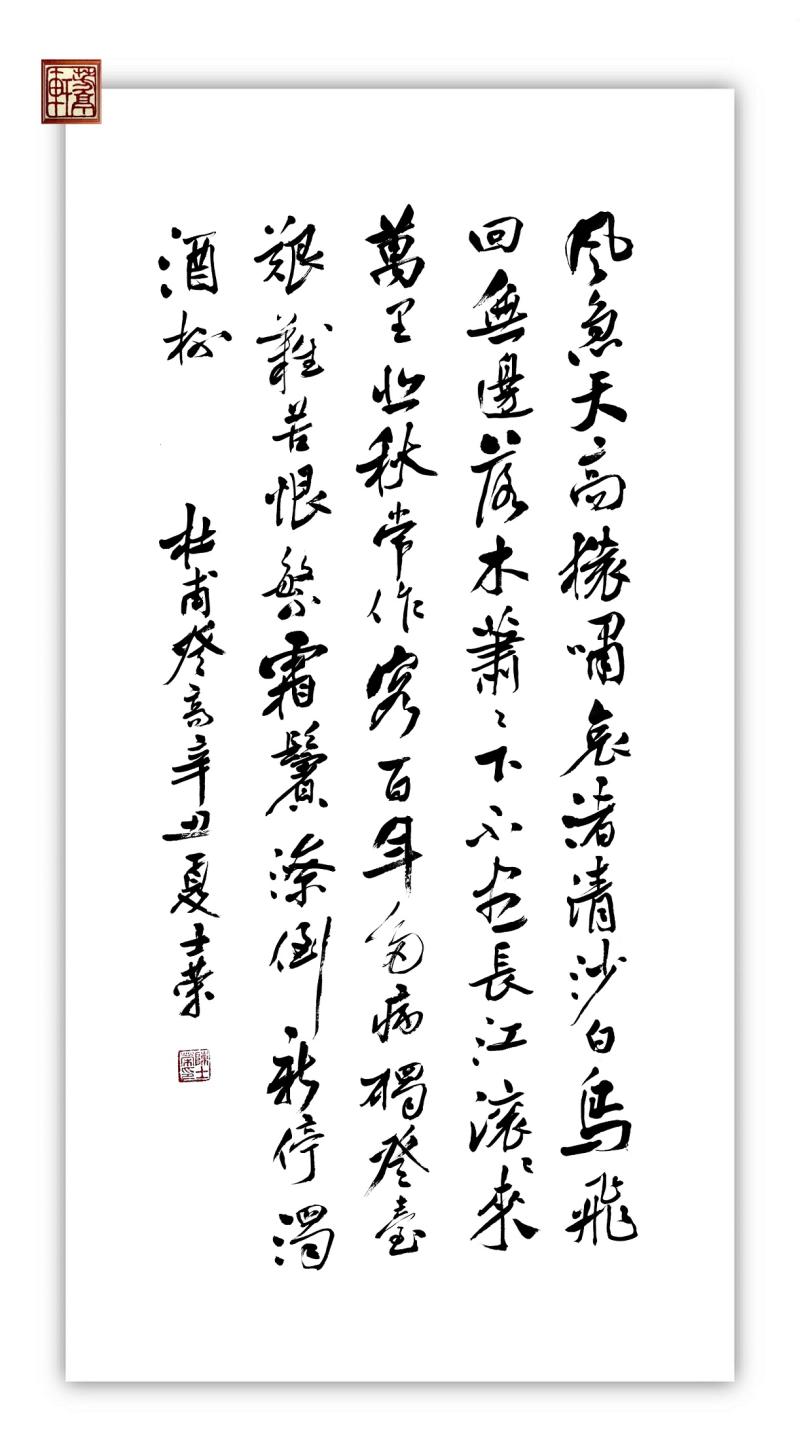 風急天高猿嘯哀渚清沙白鳥飛
回無邊落木蕭〻下不盡長江滾〻來
萬里悲秋常作客百年多病獨登臺
艱難苦恨繁霜鬢潦倒新停濁
酒杯
杜甫登高辛丑夏士榮
陳士榮印